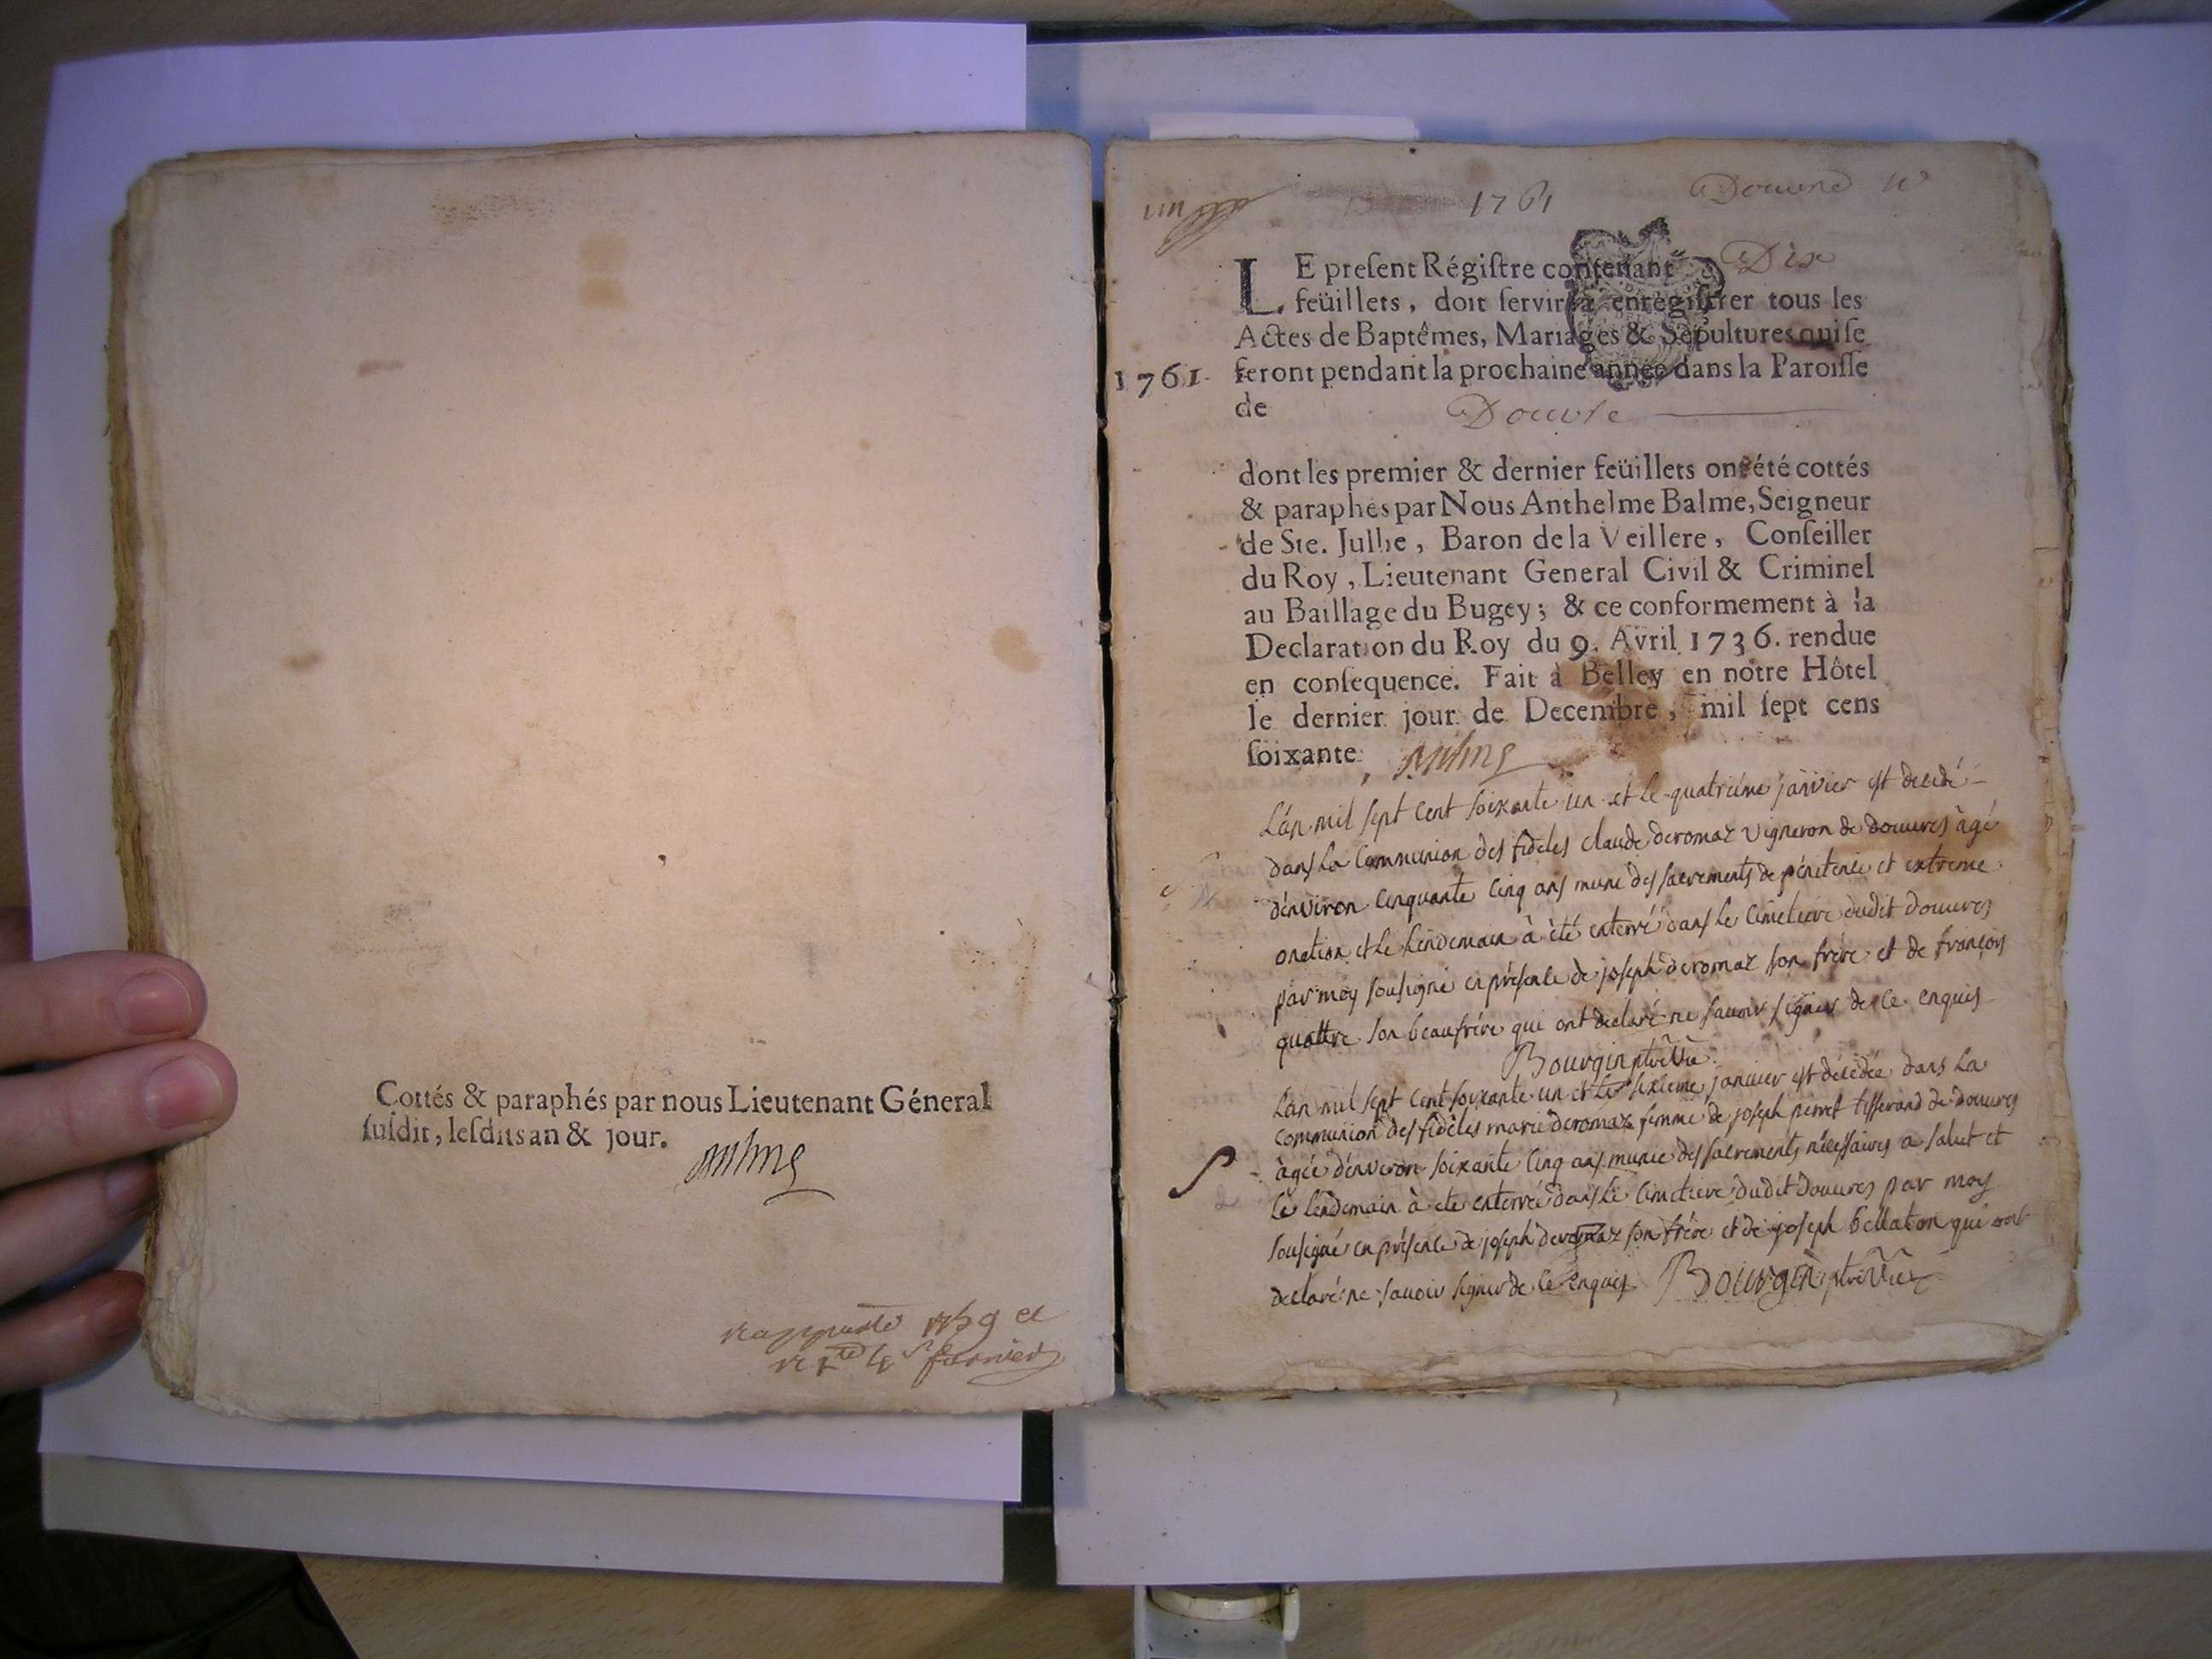 Cottés & paraphés par nous Lieutenant Géneral
susdit, lesdits an & jour.
un
1761
Dix
LE present Régistre contenant
feüillets, doit servir à enregistrer tous les
Actes de Baptêmes, Mariages & Sepultures qui se
1761. feront pendant la prochaine année dans la Paroisse
de Douvre
dont les premier & dernier feüillets ont été cottés
& paraphés par Nous Anthelme Balme, Seigneur
de Ste. Jullie, Baron de la Veillere, Conseiller
du Roy, Lieutenant General Civil & Criminel
au Baillage du Bugey; & ce conformement à la
Declaration du Roy du 9. Avril 1736. rendue
en consequence. Fait à Belley en notre Hôtel
le dernier jour de Decembre, mil sept cens
soixante
L'an mil sept cent soixante un et le quatriéme janvier est decedé
dans la Communion des fideles claude deromaz vigneron de douvres àgé
d'environ cinquante cinq ans muni des sacrements de pénitence et extreme
onction et le lendemain à été enterré dans le cimetiere dudit douvres
par moy sousigné en présence de joseph deromaz son frére et de françois
quattre son beaufrére qui ont declaré ne savoir signer de ce enquis
Bourgin ptre Vic
L'an mil sept cent soixante un et le sixieme janvier est décédée dans la
communion des fidéles marie deromaz femme de joseph perret tisserand de douvres
àgée d'environ soixante cinq ans munie des sacrements nécessaires a salut et
le lendemain à eté enterrée dans le cimetiere dudit Douvres par moy
sousigné en présence de joseph deromaz son frére et de joseph bellaton qui ont
declaré ne savoir signer de ce enquis Bourgin ptre Vic